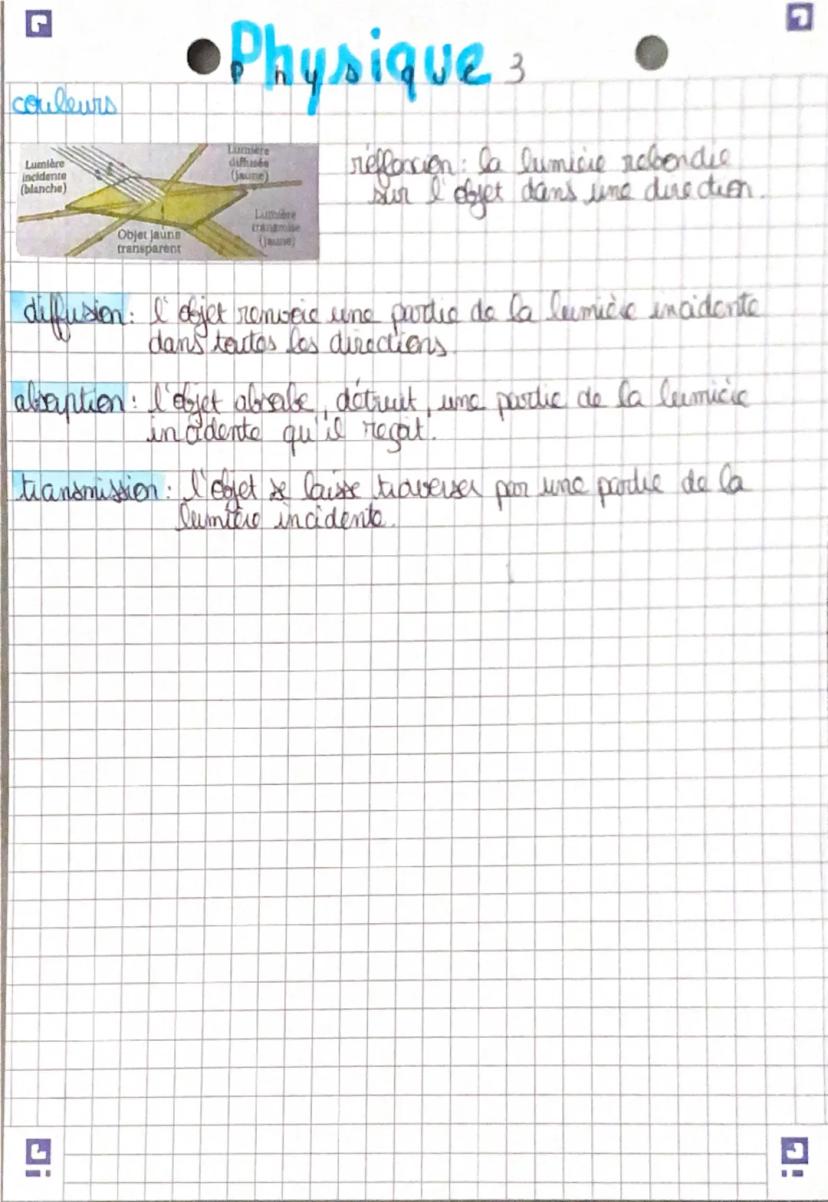 Physique 3
couleurs
Lumière
incidente
(blanche)
Lumière
diffusée
(jaune)
Objet jaune
transparent
Lumière
transmise
(jaune)
réflexion : la lumière rebondie
sur l'objet dans une direction.
diffusion : l'objet renvoie une partie de la lumière incidente
dans toutes les directions.
absorption : l'objet absorbe, détruit, une partie de la lumière
incidente qu'il reçoit.
transmission : l'objet se laisse traverser par une partie de la
lumière incidente.